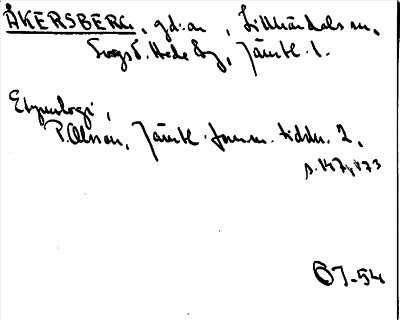 ÅKERSBERG, gd. an , Lillhärdals sn,
Svegs o. Hede hg, Jämtl. l.
Etymologi,
P. Olsson, Jämtl. fornm. tidskr. 2,
s. 147, 173
OJ-54